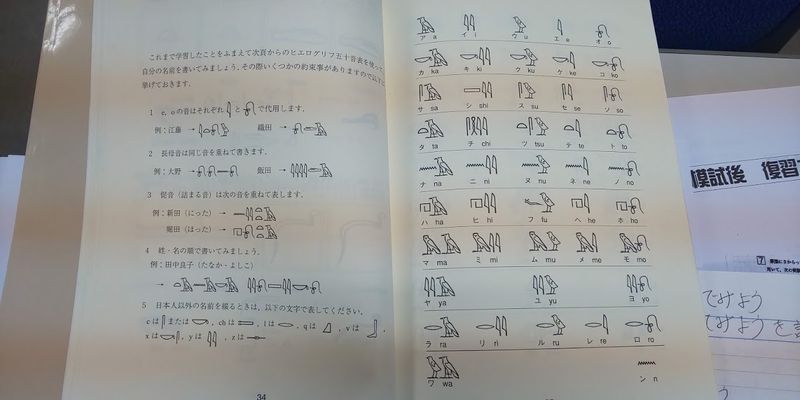 これまで学習したことをふまえて次頁からのヒエログリフ五十音表を使って
自分の名前を書いてみましょう。その際いくつかの約束事がありますので以下に
挙げておきます。
1 e, oの音はそれぞれ と で代用します。
例:江藤 → 織田 →
2 長母音は同じ音を重ねて書きます。
例:大野 → 飯田 →
3 促音(詰まる音)は次の音を重ねて表します。
例:新田(にった) →
堀田(ほった) →
4 姓・名の順で書いてみましょう。
例:田中良子(たなか・よしこ)
→
5 日本人以外の名前を綴るときは、以下の文字で表してください。
cは または 、chは 、lは 、qは 、vは 、
xは 、yは 、zは
34
ア a イ i ウ u エ e オ o
カ ka キ ki ク ku ケ ke コ ko
サ sa シ shi ス su セ se ソ so
タ ta チ chi ツ tsu テ te ト to
ナ na ニ ni ヌ nu ネ ne ノ no
ハ ha ヒ hi フ fu ヘ he ホ ho
マ ma ミ mi ム mu メ me モ mo
ヤ ya ユ yu ヨ yo
ラ ra リ ri ル ru レ re ロ ro
ワ wa ン n
模試後 復習
7
でみよう
てみようを